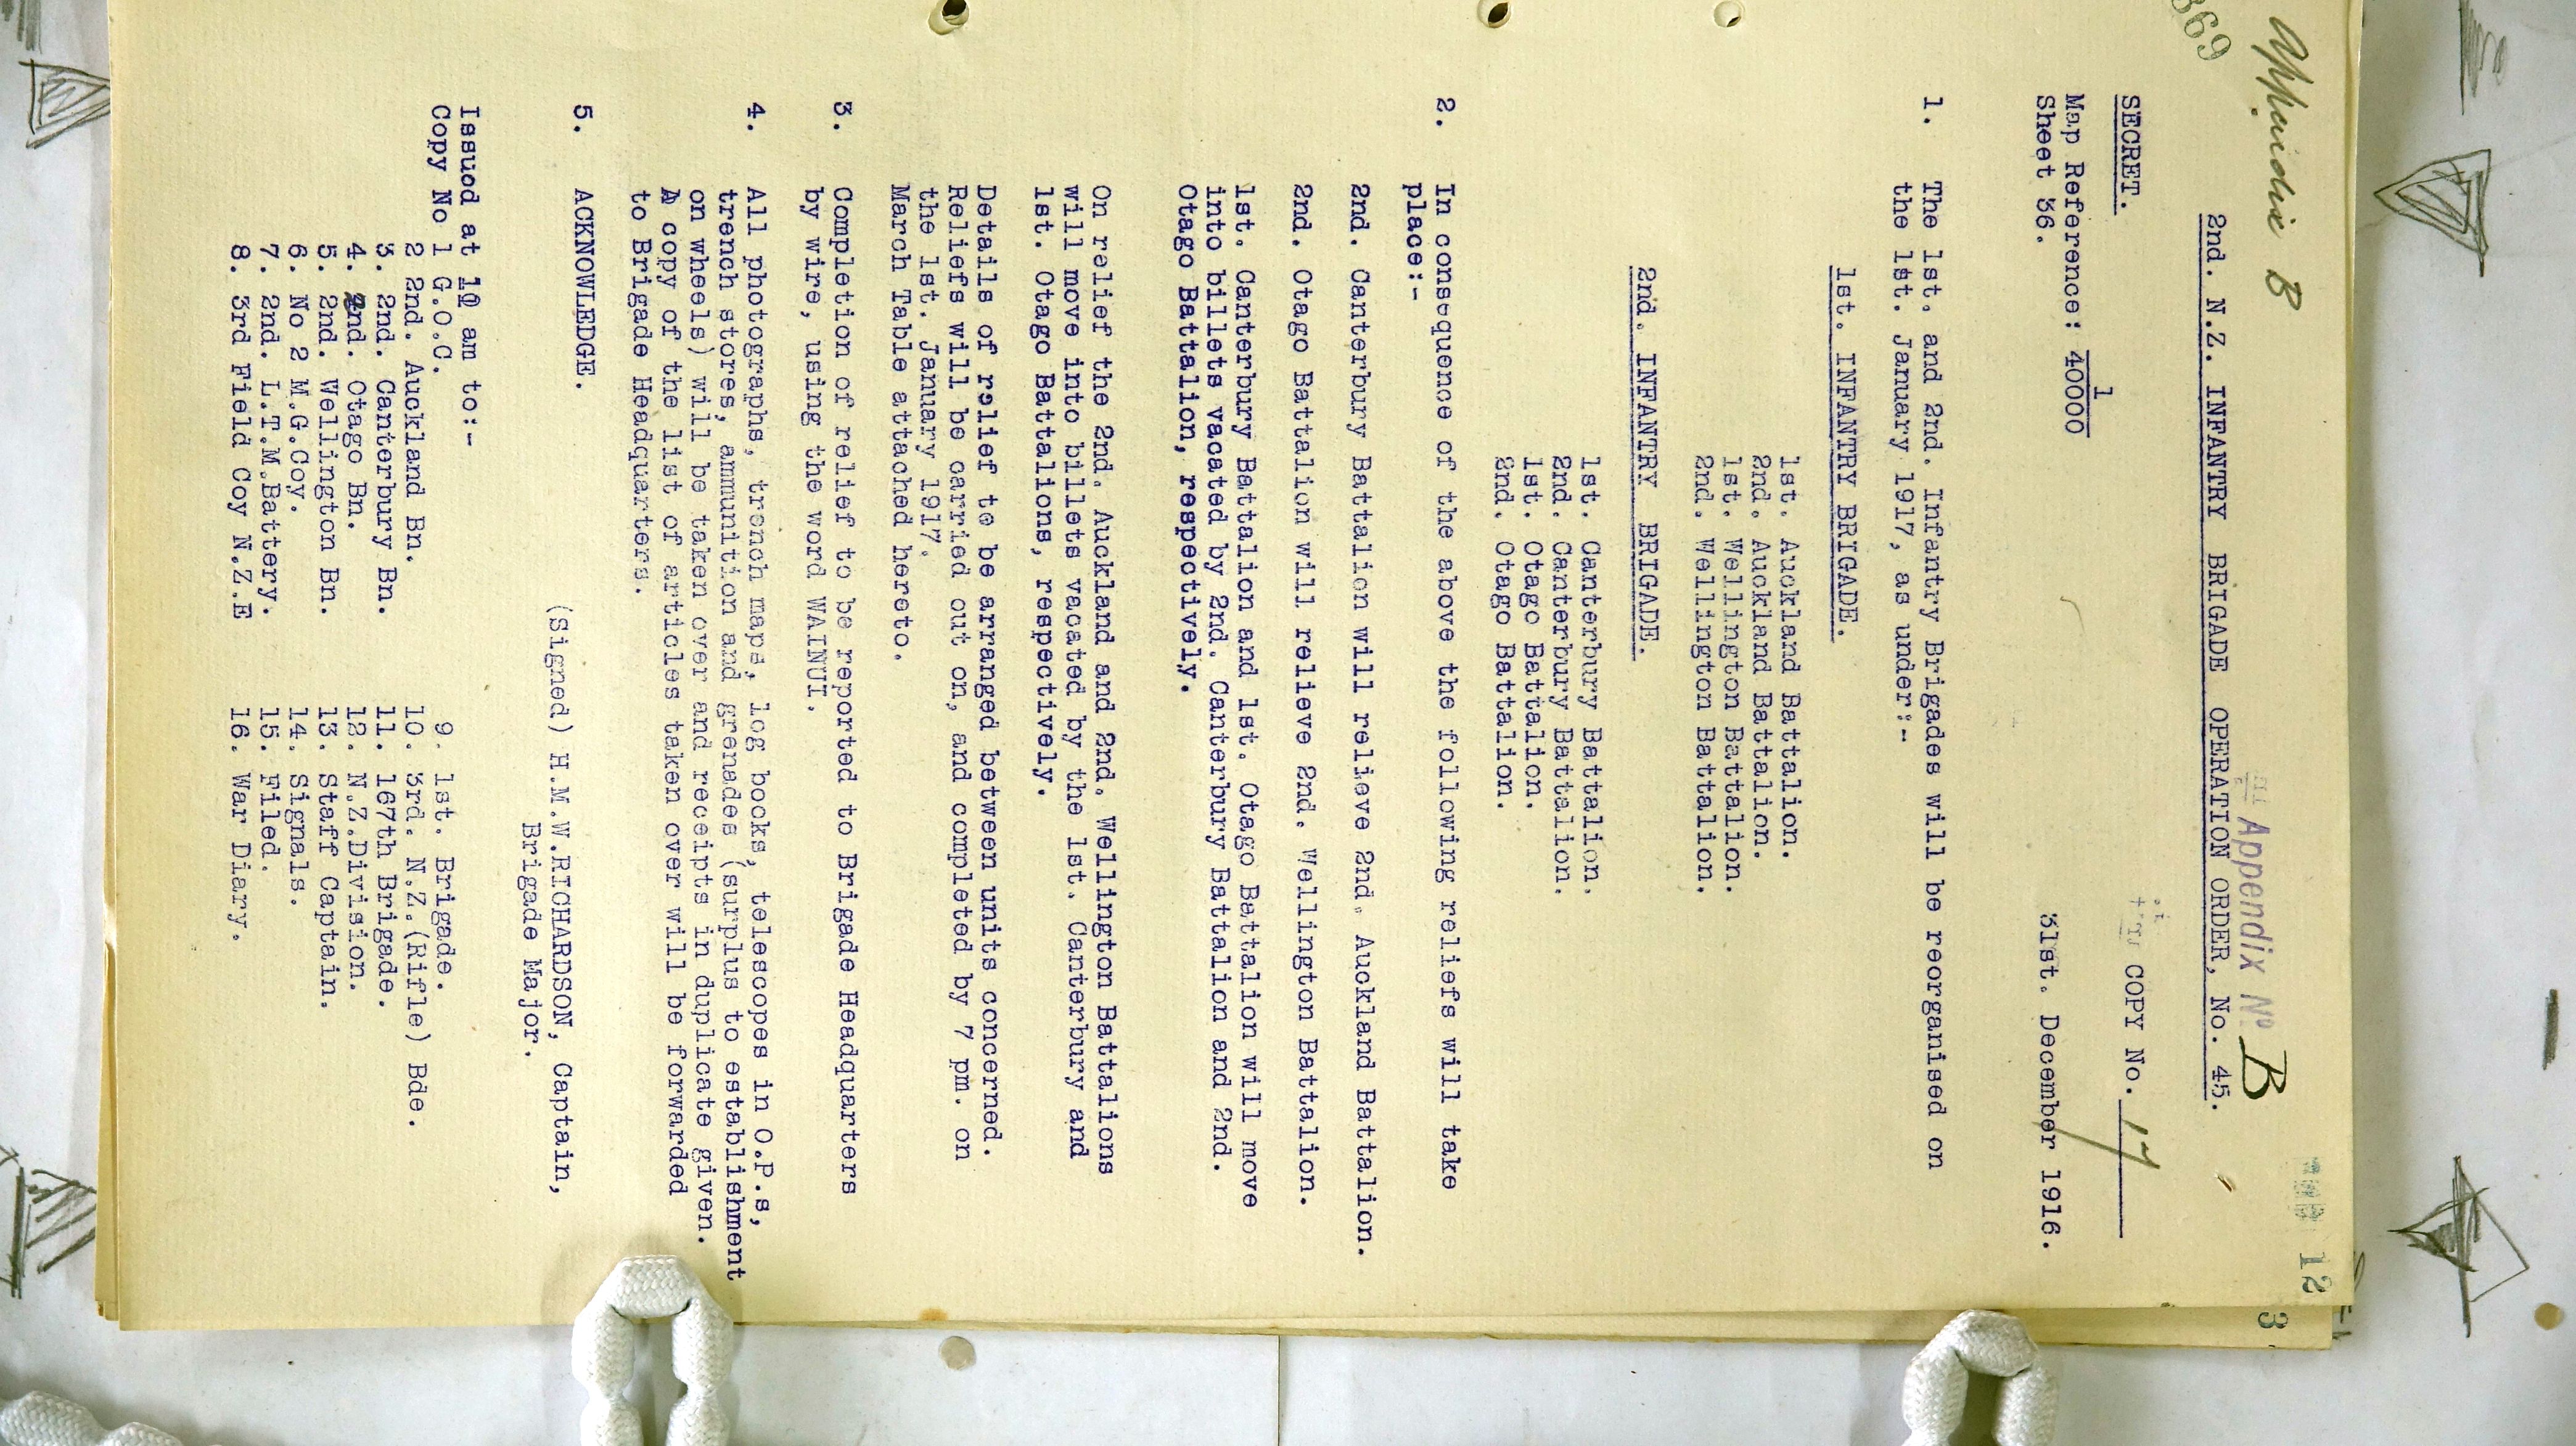 Appendix B
369
12
3
Appendix No B
2nd. N.Z. INFANTRY BRIGADE OPERATION ORDER, No. 45.
SECRET.
COPY No. 17
Map Reference: 1
40000
Sheet 36.
31st. December 1916.
1. The 1st. and 2nd. Infantry Brigades will be reorganised on
the 1st. January 1917, as under:-
1st. INFANTRY BRIGADE.
1st. Auckland Battalion.
2nd. Auckland Battalion.
1st. Wellington Battalion.
2nd. Wellington Battalion.
2nd. INFANTRY BRIGADE.
1st. Canterbury Battalion.
2nd. Canterbury Battalion.
1st. Otago Battalion.
2nd. Otago Battalion.
2. In consequence of the above the following reliefs will take
place:-
2nd. Canterbury Battalion will relieve 2nd. Auckland Battalion.
2nd. Otago Battalion will relieve 2nd. Wellington Battalion.
1st. Canterbury Battalion and 1st. Otago Battalion will move
into billets vacated by 2nd. Canterbury Battalion and 2nd.
Otago Battalion, respectively.
On relief the 2nd. Auckland and 2nd. Wellington Battalions
will move into billets vacated by the 1st. Canterbury and
1st. Otago Battalions, respectively.
Details of relief to be arranged between units concerned.
Reliefs will be carried out on, and completed by 7 pm. on
the 1st. January 1917.
March Table attached hereto.
3. Completion of relief to be reported to Brigade Headquarters
by wire, using the word WAINUI.
4. All photographs, trench maps, log books, telescopes in O.P.s,
trench stores, ammunition and grenades (surplus to establishment
on wheels) will be taken over and receipts in duplicate given.
A copy of the list of articles taken over will be forwarded
to Brigade Headquarters.
5. ACKNOWLEDGE.
(Signed) H.M.W.RICHARDSON, Captain,
Brigade Major.
Issued at 10 am to:-
Copy No 1 G.O.C. 9. 1st. Brigade.
2 2nd. Auckland Bn. 10. 3rd. N.Z.(Rifle) Bde.
3. 2nd. Canterbury Bn. 11. 167th Brigade.
4. 2nd. Otago Bn. 12. N.Z.Division.
5. 2nd. Wellington Bn. 13. Staff Captain.
6. No 2 M.G.Coy. 14. Signals.
7. 2nd. L.T.M.Battery. 15. Filed.
8. 3rd Field Coy N.Z.E 16. War Diary.